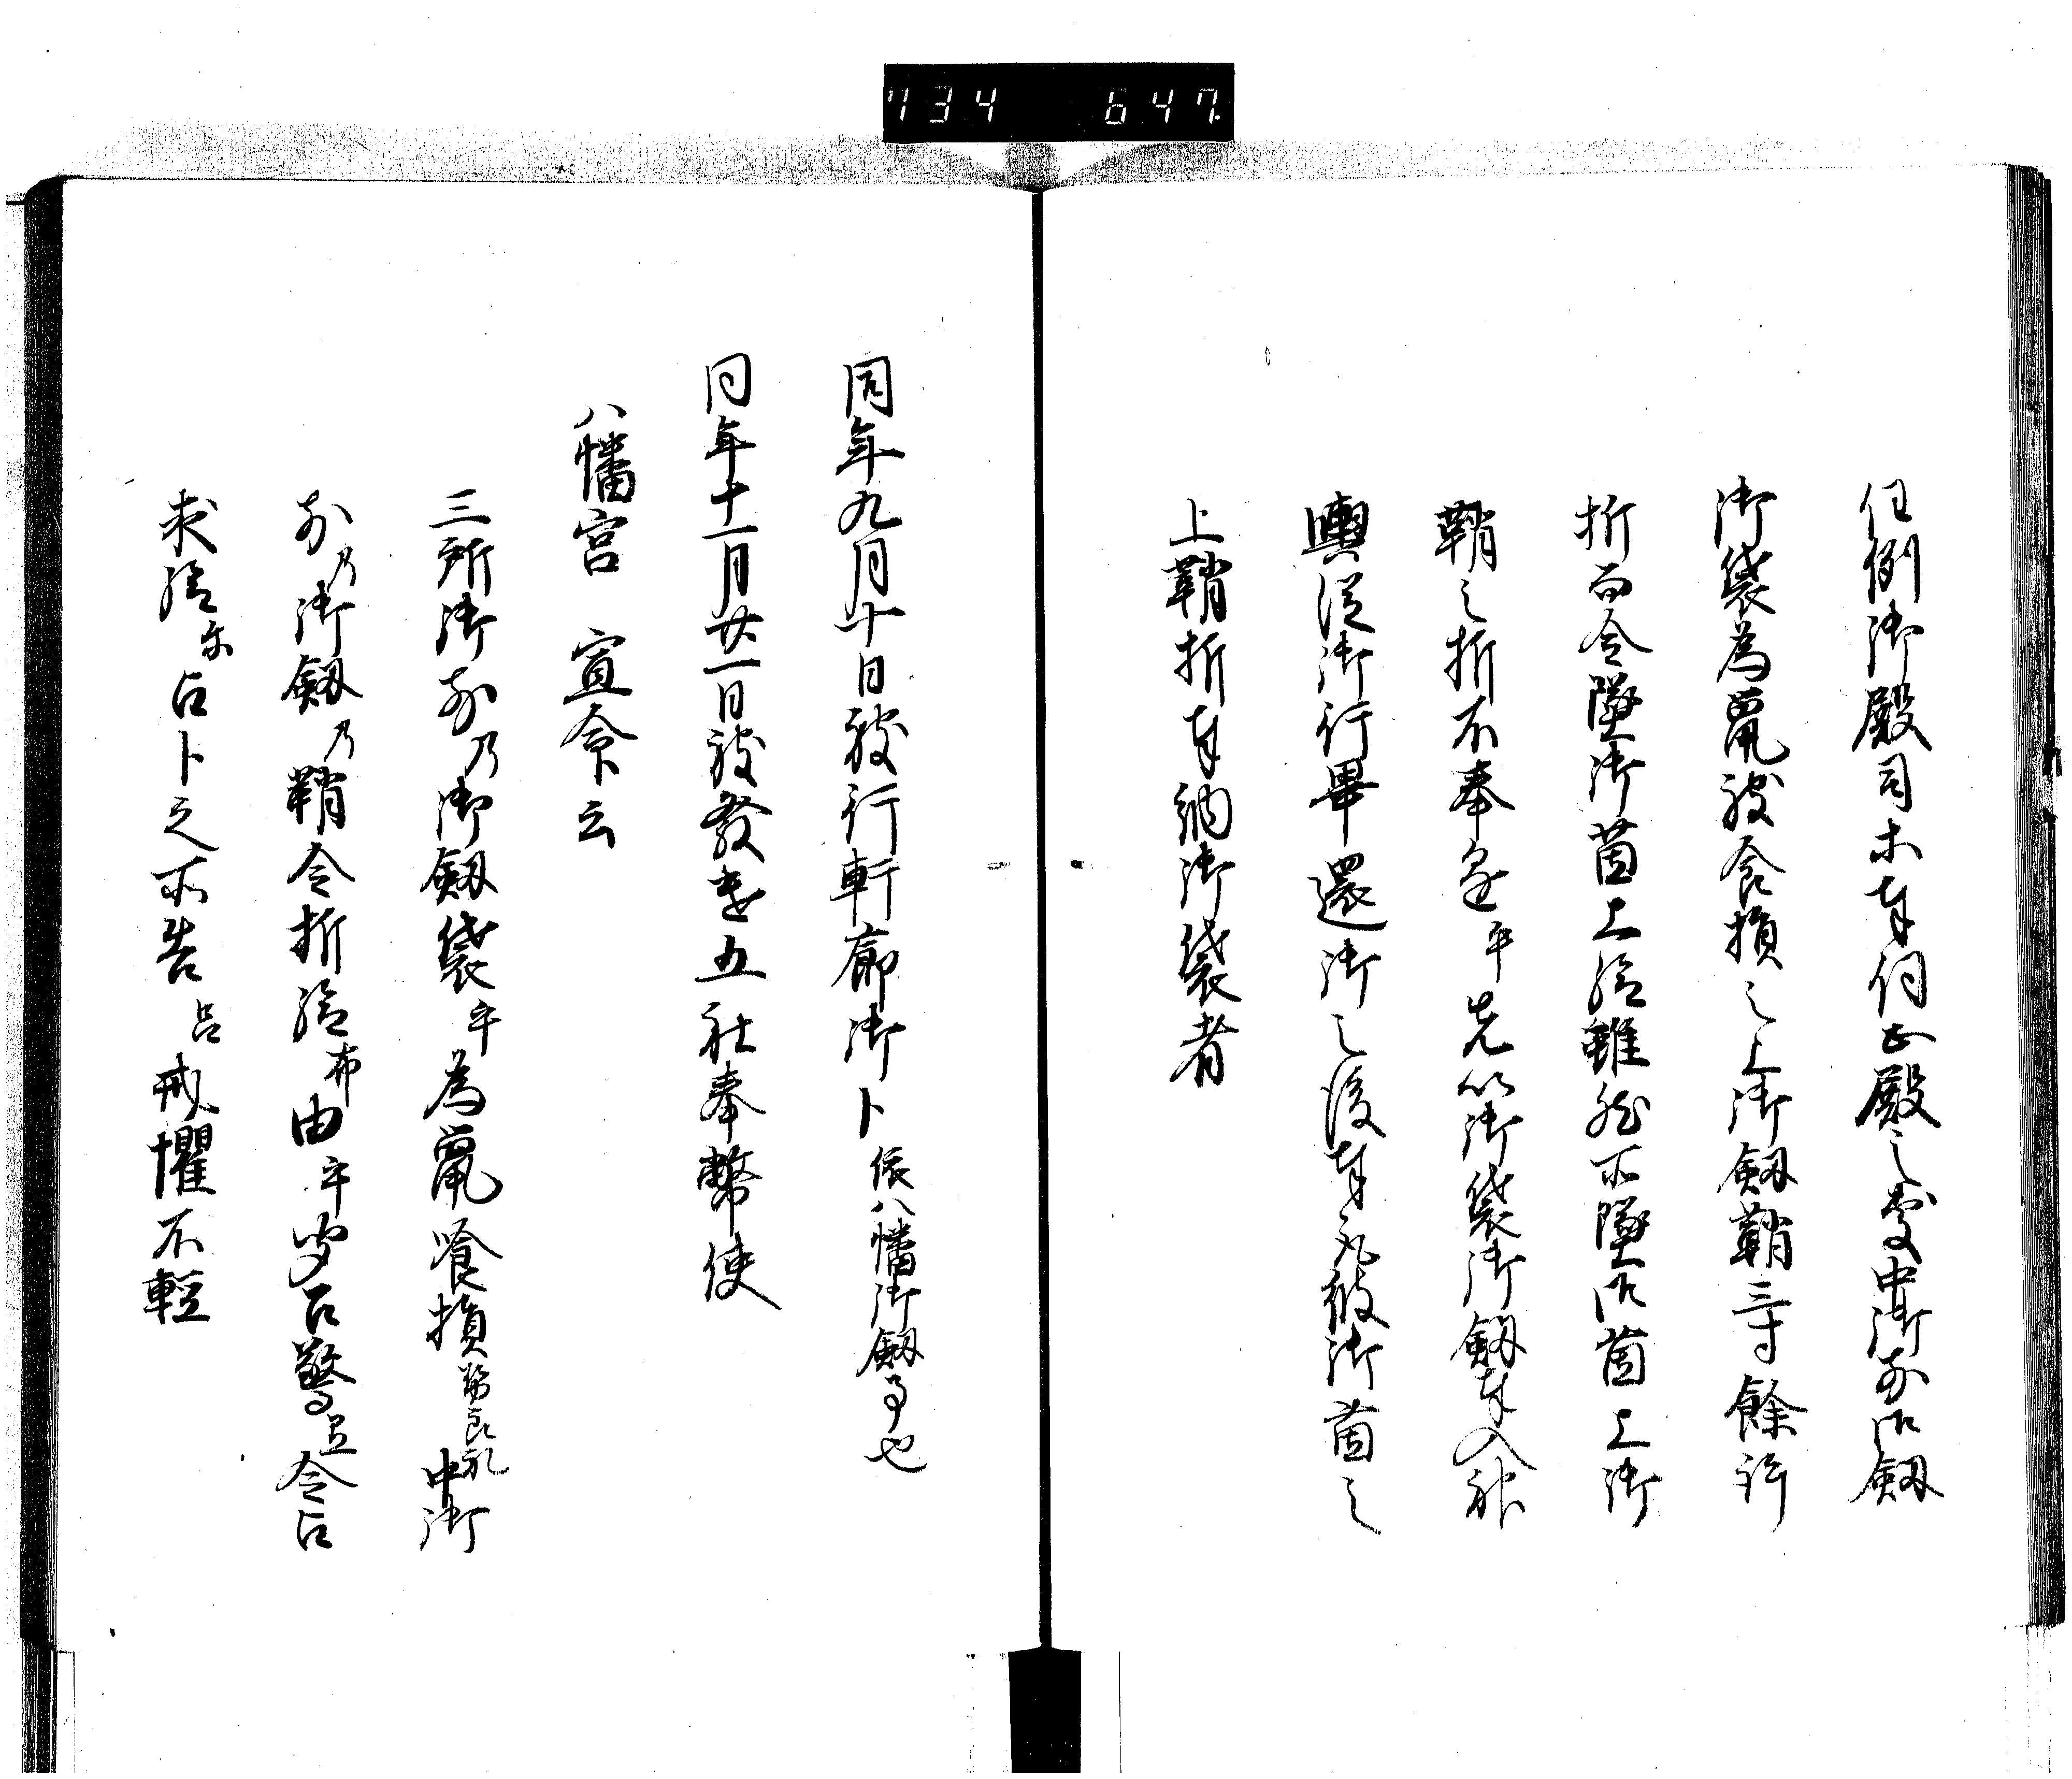 734 647
任例御殿司等奉伺正殿之處中御前御劔
御袋為鼠被食損之上御劔鞘三寸餘許
折而令墜御茵上給雖然不墜御茵上御
鞘之折不奉是乎先以御袋御劔奉入神
輿従御行畢還御之後奉見彼御茵之
上鞘折奉納御袋者
同年九月十日被行軒廊御卜依八幡御劔事也
同年十一月廿一日被發遣五社奉幣使
八幡宮 宣命云
三所御前乃御劔袋乎為鼠喰損勢良礼中御
前乃御劔乃鞘令折給布由乎聞召驚且令占
求給尓占卜之所告占戒懼不輕